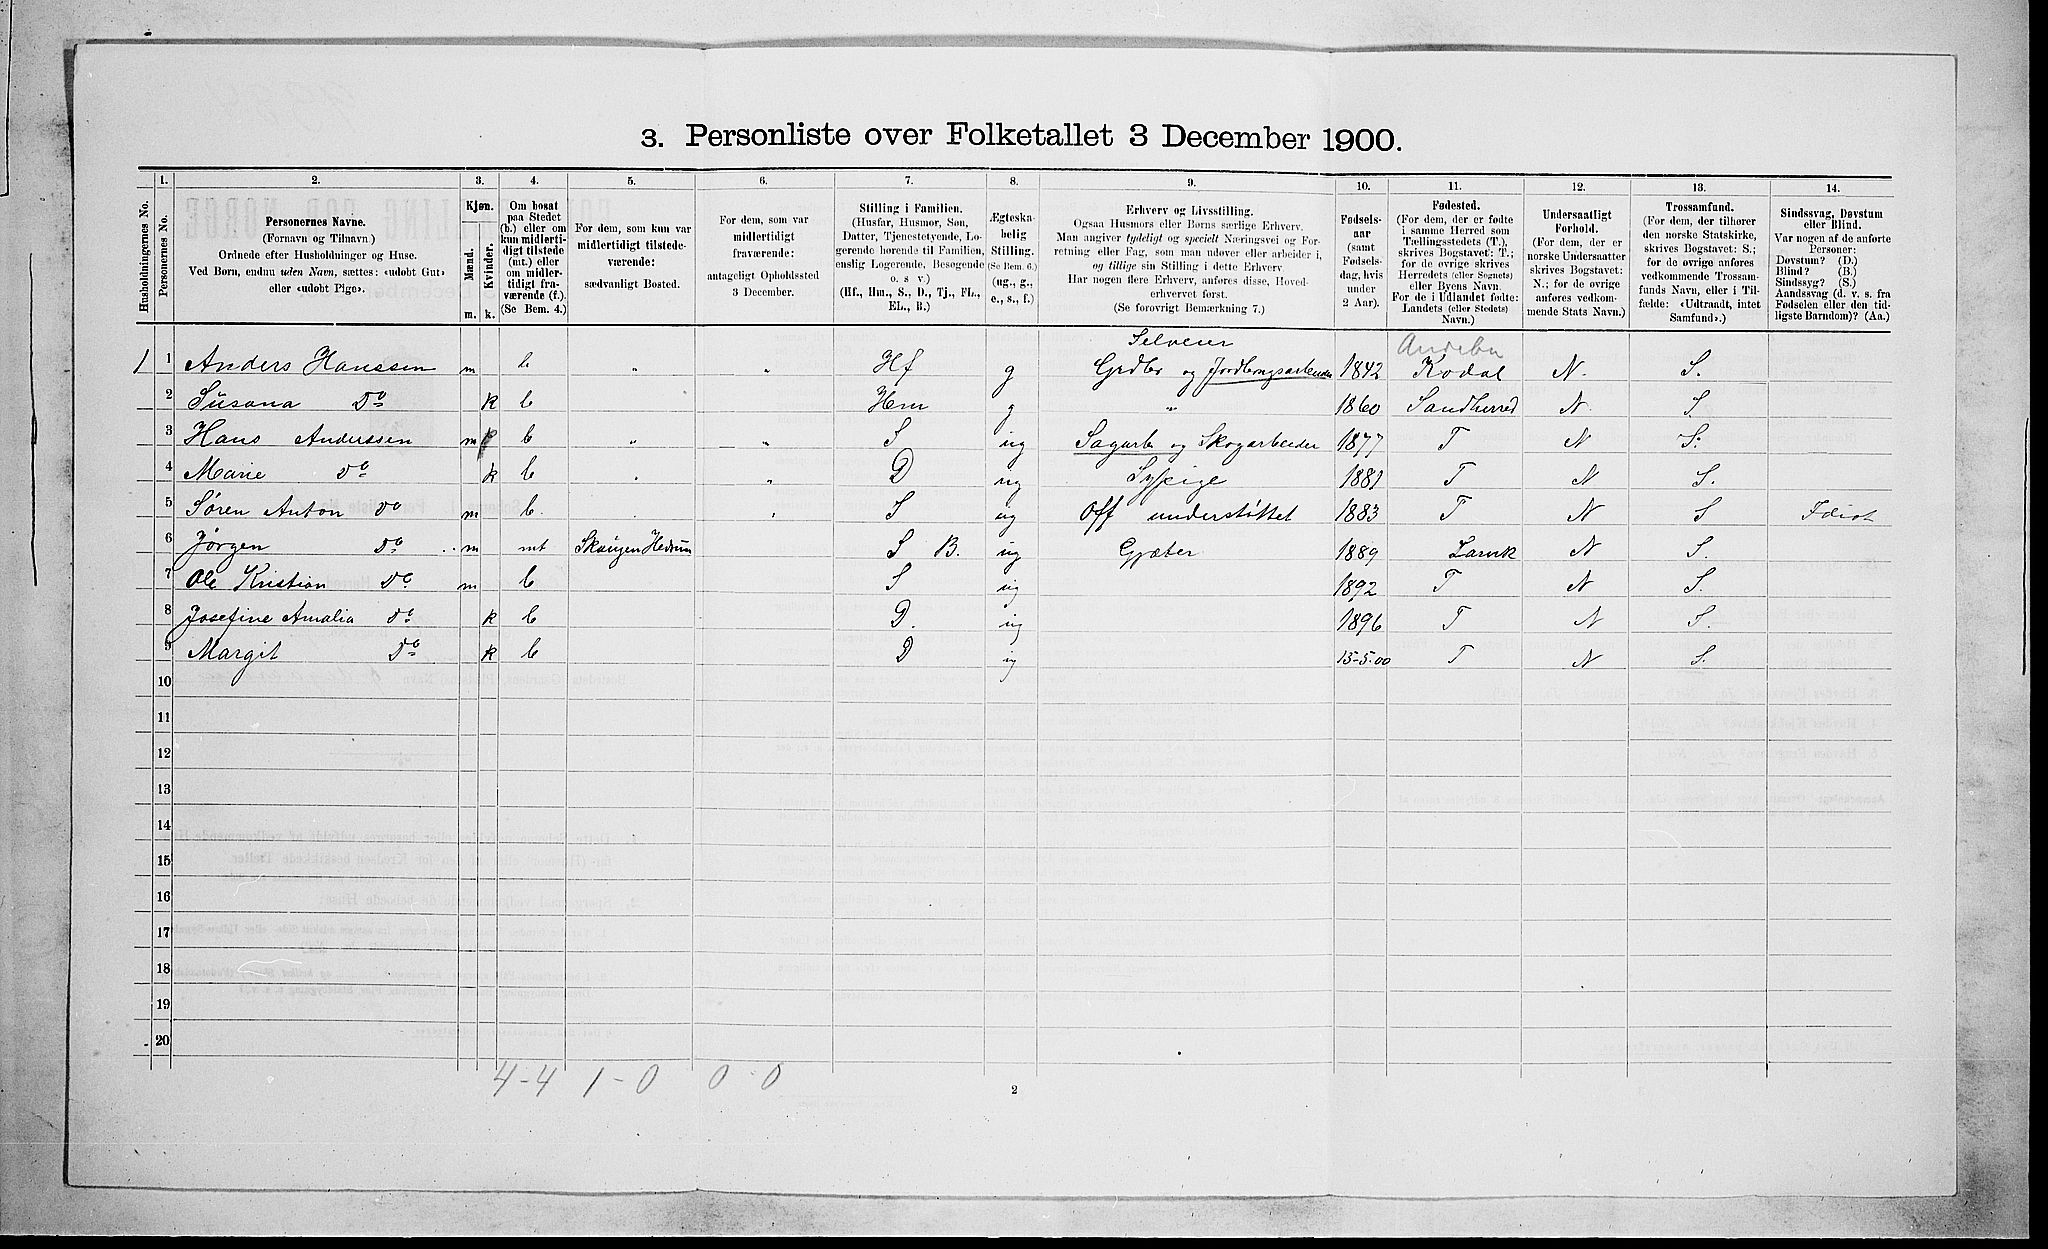 3. Personliste over Folketallet 3 December 1900.
Husholdningernes No.
1.
Personernes No.
2.
Personernes Navne.
(Fornavn og Tilnavn.)
Ordnede efter Husholdninger og Huse.
Ved Børn, endnu uden Navn, sættes: «udøbt Gut»
eller «udøbt Pige».
3.
Kjøn.
Mænd.
Kvinder.
m. k.
4.
Om bosat
paa Stedet
(b.) eller om
kun midlerti-
digt tilstede
(mt.) eller
om midler-
tidigt fra-
værende (f.).
(Se Bem. 4.)
5.
For dem, som kun var
midlertidigt tilstede-
værende:
sædvanligt Bosted.
6.
For dem, som var
midlertidigt
fraværende:
antageligt Opholdssted
3 December.
7.
Stilling i Familien.
(Husfar, Husmor, Søn,
Datter, Tjenestetyende, Lo-
gerende hørende til Familien,
enslig Logerende, Besøgende
o. s. v.)
(Hf., Hm., S., D., Tj., FL.,
EL., B.)
8.
Ægteska-
belig
Stilling.
(Se Bem. 6.)
(ug., g.,
e., s., f.)
9.
Erhverv og Livsstilling.
Ogsaa Husmors eller Børns særlige Erhverv.
Man angiver tydeligt og specielt Næringsvei og For-
retning eller Fag, som man udøver eller arbeider i,
og tillige sin Stilling i dette Erhverv.
Har nogen flere Erhverv, anføres disse, Hoved-
erhvervet først.
(Se forøvrigt Bemærkning 7.)
10.
Fødsels-
aar
(samt
Fødsels-
dag, hvis
under
2 Aar).
11.
Fødested.
(For dem, der er fødte
i samme Herred som
Tællingsstedets (T.),
skrives Bogstavet: T.;
for de øvrige skrives
Herredets (eller Sognets)
eller Byens Navn.
For de i Udlandet fødte:
Landets (eller Stedets)
Navn.)
12.
Undersaatligt
Forhold.
(For dem, der er
norske Undersaatter
skrives Bogstavet:
N.; for de øvrige
anføres vedkom-
mende Stats Navn.)
13.
Trossamfund.
(For dem, der tilhører
den norske Statskirke,
skrives Bogstavet: S.;
for de øvrige anføres
vedkommende Trossam-
funds Navn, eller i Til-
fælde: «Udtraadt, intet
Samfund».)
14.
Sindssvag, Døvstum
eller Blind.
Var nogen af de anførte
Personer:
Døvstum? (D.)
Blind? (B.)
Sindssyg? (S.)
Aandssvag (d. v. s. fra
Fødselen eller den tid-
ligste Barndom)? (Aa.)
Selveier Andebu
1 1 Anders Hanssen m b " " Hf g Grdbr og Jordbrugsarbeider 1842 Kodal N. S.
2 Susana Do k b Hm g " 1860 Sandherred N. S.
3 Hans Anderssen m b " " S ug Sagarb og Skogarbeider 1877 T N S.
4 Marie Do k b " " D ug Sypige 1881 T N S.
5 Søren Anton Do m b. S ug Off understøttet 1883 T N S Idiot
6 Jørgen Do m mt Skaugen Hedrum S B. ug Gjæter 1889 Larvik N S.
7 Ole Kristian Do m b S ug 1892 T N S.
8 Josefine Amalia Do k b D. ug 1896 T N S.
9 Margit Do k b D ug 15-5.00 T N S.
10
11
12
13
14
15
16
17
18
19
20
4-4 1-0 0-0
2